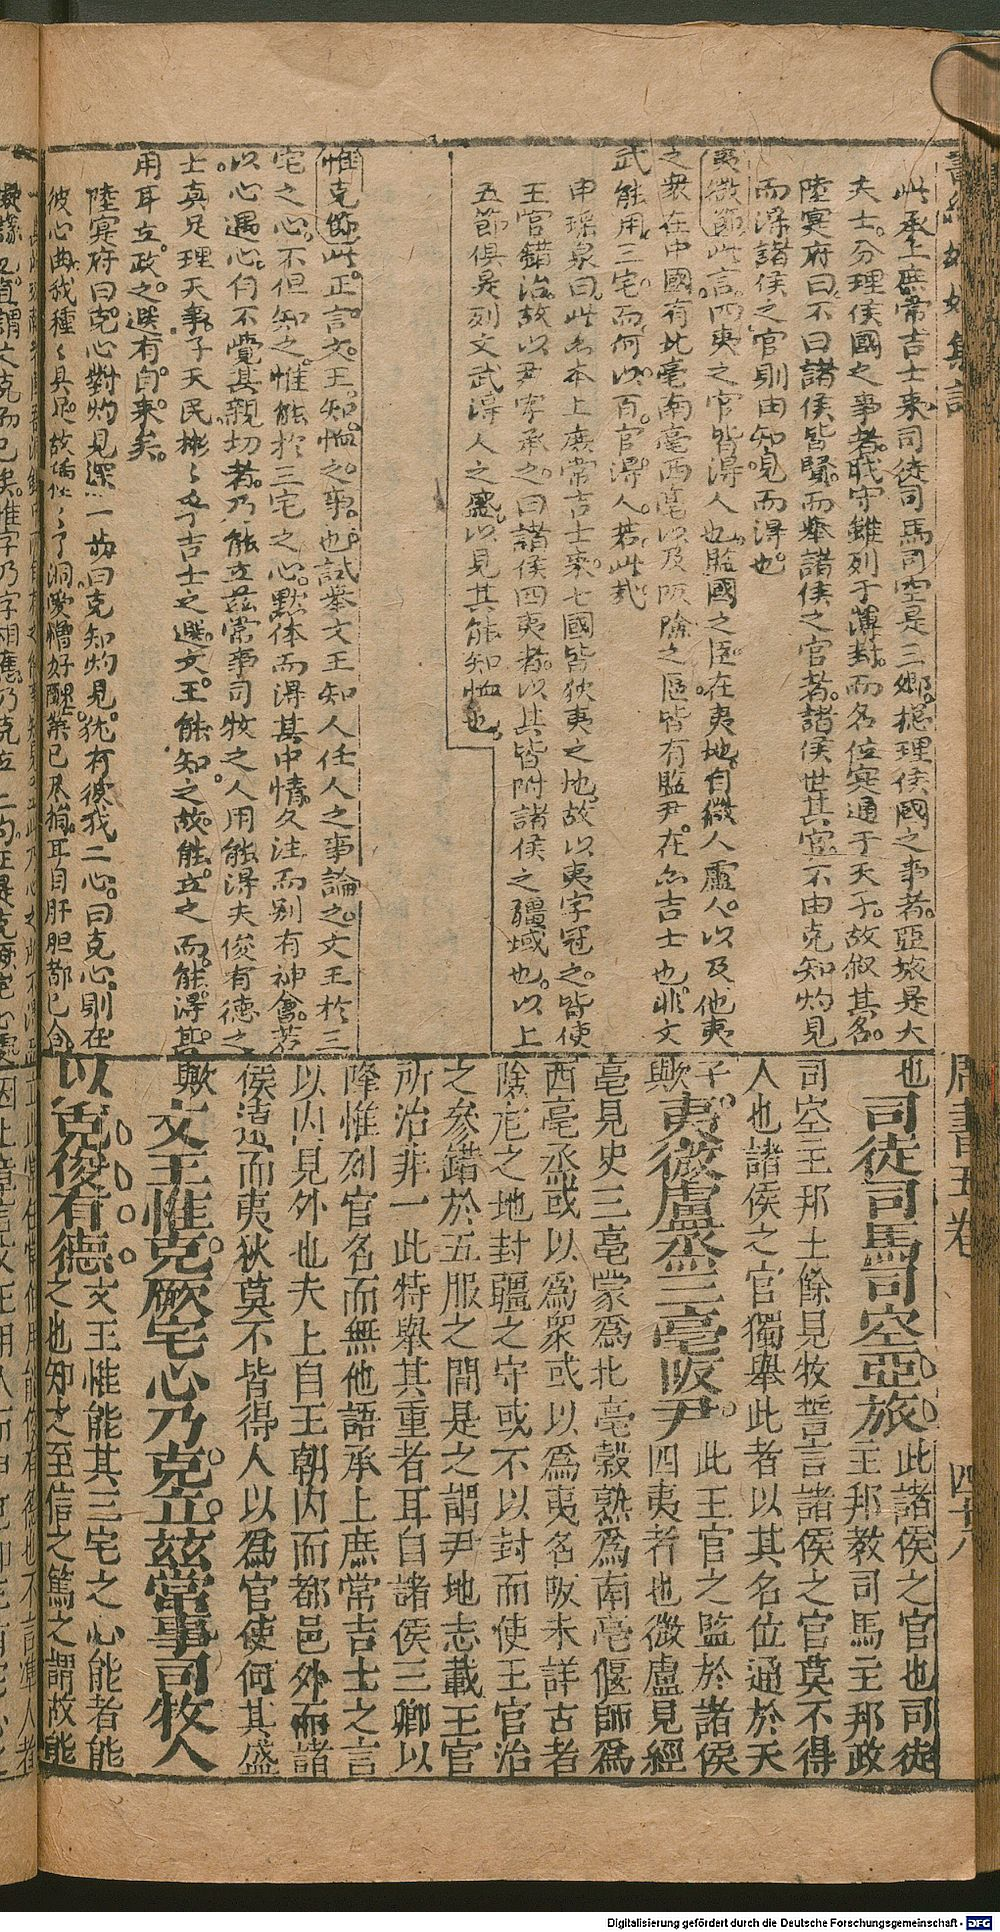 此承上庶常吉士來司徒司馬司空是三卿總理侯國之事者亞旅是大
夫士分理侯國之事者職守雖列于薄封而名位寔通于天子故叙其名
陸寔府曰不曰諸侯皆賢而舉諸侯之官者諸侯世其官不由克知灼見
而得諸侯之官則由知見而得也
夷微節此言四夷之官皆得人也監國之臣在夷地自微人盧人以及他夷
之衆在中國有北亳南亳西亳以及阪險之區皆有監尹在亦吉士也非文
武能用三宅而何以百官得人若此哉
申瑶泉曰此亦本上庶常吉士來七國皆狄夷之地故以夷字冠之皆使
王官錯治故以尹字承之曰諸侯四夷者以其皆附諸侯之疆域也以上
五節俱是列文武得人之盛以見其能知恤也
惟克節此正言文王知恤之事也試舉文王知人任人之事論之文王於三
宅之心不但知之惟能於三宅之心默体而得其中情久注而別有神會若
以心遇心自不覺其親切者乃能立茲常事司牧之人用能得夫俊有德之
士真足理天事子天民彬彬多吉士之選文王能知之故能立之而能得其
用耳立政之選有自來矣
陸寔府曰克心對灼見深一節曰克知灼見犹有彼我二心曰克心則在
彼心曲我種種具足故
洞愛憎好醜築已尽捐耳目肝胆都已
周書五卷
四十八
也司徒司馬司空亞旅此諸侯之官也司徒
主邦教司馬主邦政
司空主邦土餘見牧誓言諸侯之官莫不得
人也諸侯之官獨舉此者以其名位通於天
子歟夷微盧烝三亳阪尹此王官之監於諸侯
四夷者也微盧見經
亳見史三亳蒙爲北亳穀熟爲南亳偃師爲
西亳烝或以爲衆或以爲夷名阪未詳古者
險危之地封疆之守或不以封而使王官治
之參錯於五服之間是之謂尹地志載王官
所治非一此特舉其重者耳自諸侯三卿以
降惟列官名而無他語承上庶常吉士之言
以内見外也夫上自王朝内而都邑外而諸
侯遠而夷狄莫不皆得人以爲官使何其盛
歟文王惟克厥宅心乃克立茲常事司牧人
以克俊有德文王惟能其三宅之心能者能
之也知之至信之篤之謂故能
Digitalisierung gefördert durch die Deutsche Forschungsgemeinschaft - DFG